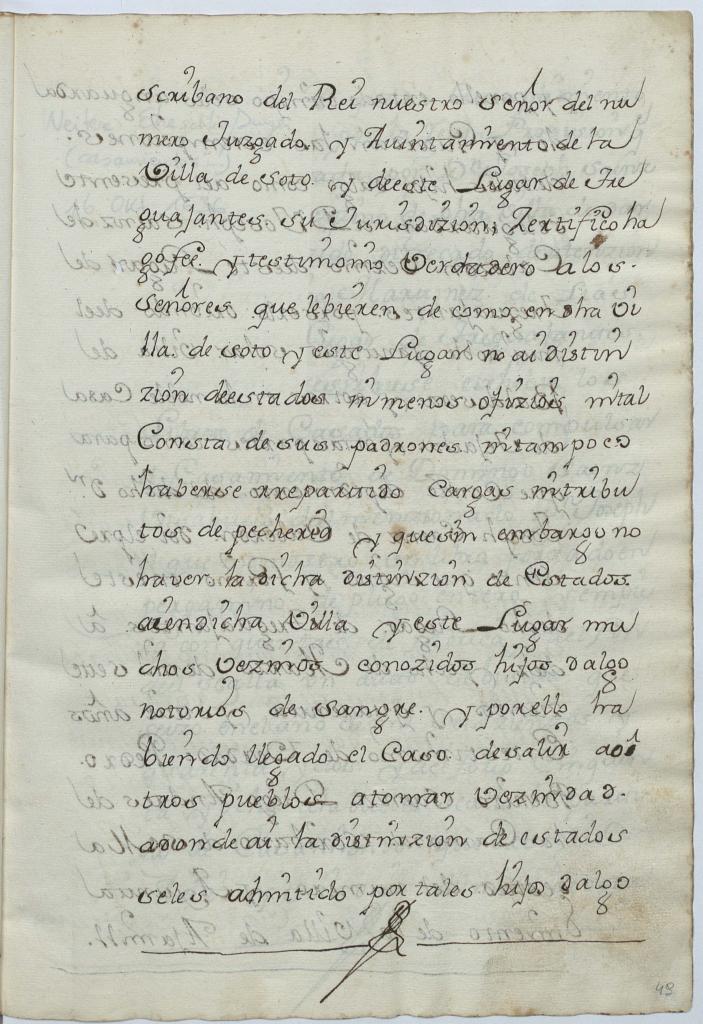 scribano del Rei nuestro señor del nu
mero Juzgado y Aiuntamiento de la
Villa de Soto y deeste Lugar de Tre
guajantes su Jurisdizión, Zertifico ha
go feé y testimonio Verdadero alos
Señores que lebieren de como en dha Vi
lla de Soto y este Lugar no ai distin
zión deestados ni menos ofizios ni tal
Consta de sus padrones ni tampoco
haberse rrepartido Cargas ni tribu
tos de pecheria y que sin embargo no
haver la dicha distinzión de Estados
ai en dicha Villa y este Lugar mu
chos Vezinos conozidos hijos dalgo
notorios de Sangre y por ello ha
biendo llegado el Caso de salir a o
tros pueblos a tomar Vezindad
adonde ai la distinzión de estados
seles admitido por tales hijos dalgo
49